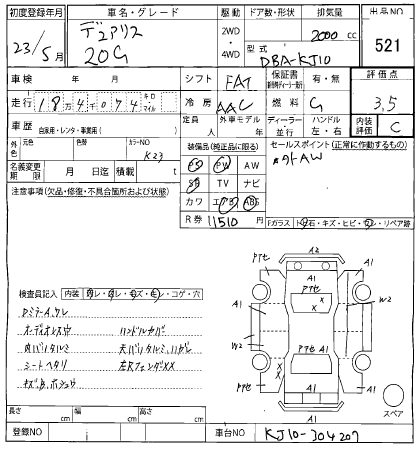 初度登録年月 車名・グレード 駆動 ドア数・形状 排気量 出品NO
23/5月 デュアリス 20G 2WD・4WD 2000cc 521
型式 DBA-KJ10
車検 年 月 シフト FAT 保証書 有・無 評価点 3.5
走行 18万4千074キロ・マイル 冷房 AAC 燃料 G
車歴 自家用・レンタ・事業用( ) 定員 人 外車モデル 年 ディーラー・並行 ハンドル 左・右 内装評価 C
外色 元色 色替 カラーNO K23
装備品(純正品に限る) セールスポイント(正常に作動するもの)
PS PW AW 外AW
名義変更期限 月 日迄 積載 t
SR TV ナビ
注意事項(欠品・修復・不具合箇所および状態)
カワ エアB ABS
R券 11510円
Fガラス ト石・キズ・ヒビ・ワレ・リペア跡
検査員記入 内装 ワレ・スレ・キズ・シミ・コゲ・穴
DミラーA.ケレ
オーデオレスウ ハンドルカバー
内バリタルミ 天バリタルミ.ハガレ
シートヘタリ 左RフェンダXX
A2
A1
A1
A1
W2
W2
A1
A1
A1
A1
スペア
長さ cm 幅 cm 高さ cm
登録NO 車台NO KJ10-304207